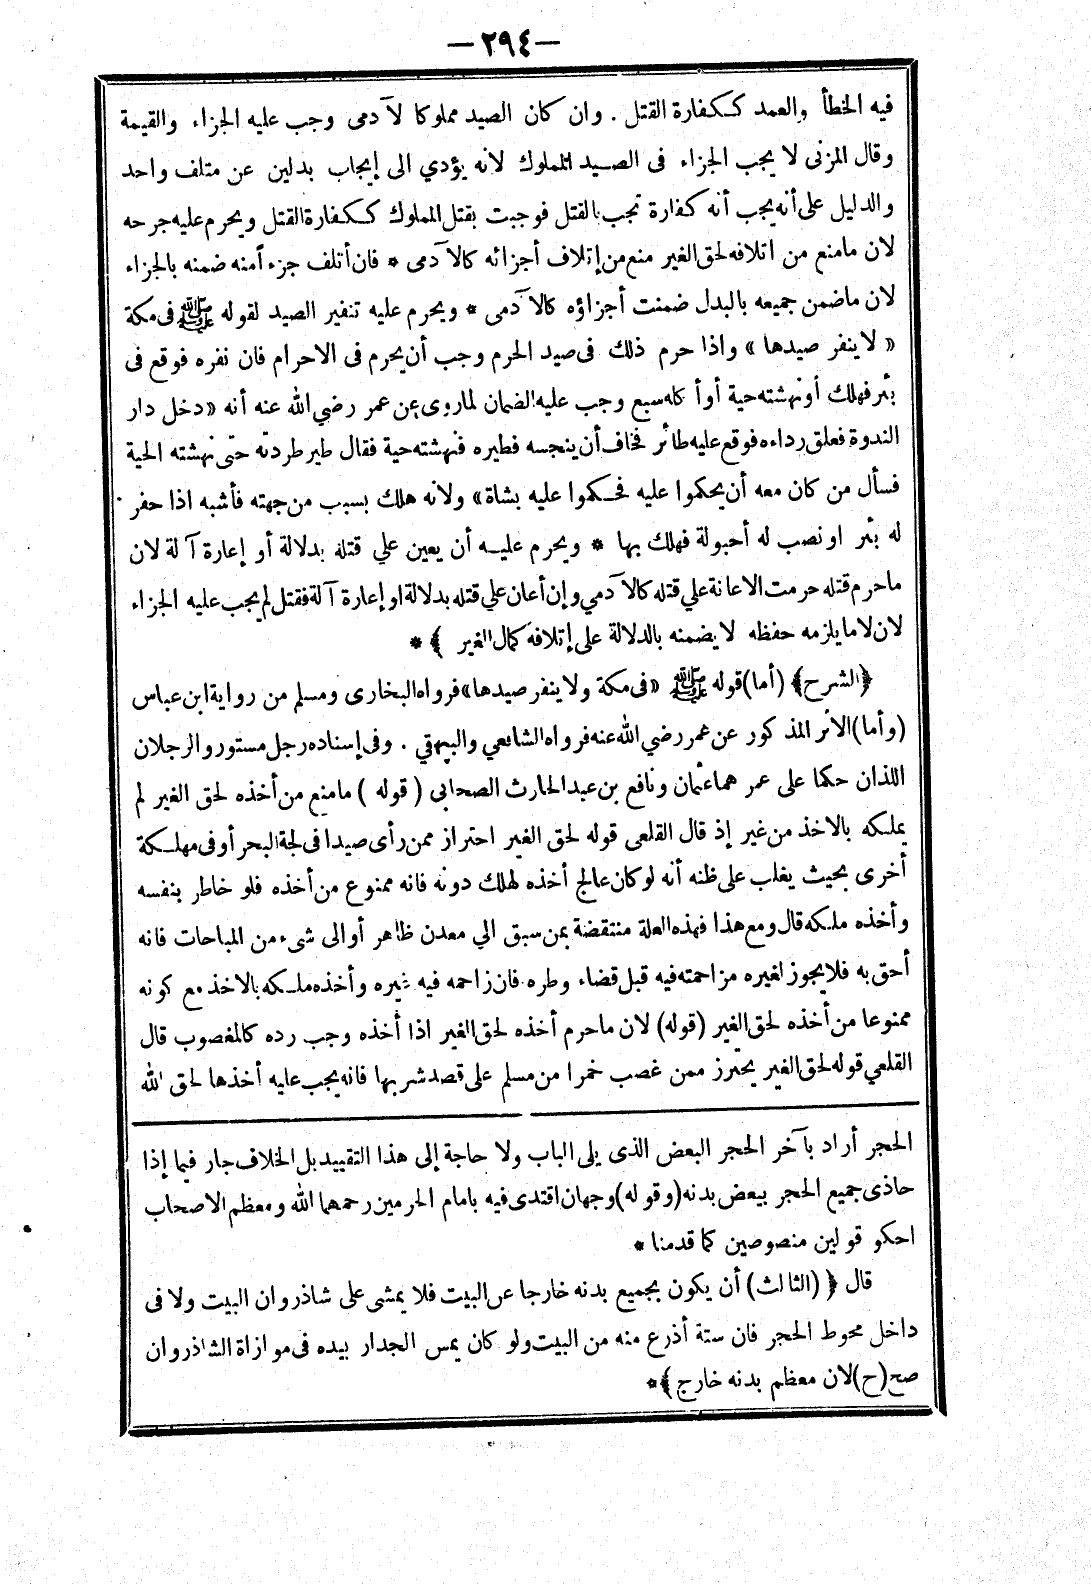 — ٢٩٤ —
فيه الخطأ والعمد ككفارة القتل . وان كان الصيد مملوكا لآدمى وجب عليه الجزاء والقيمة
وقال المزنى لا يجب الجزاء فى الصيد المملوك لأنه يؤدي الى إيجاب بدلين عن متلف واحد
والدليل على أنه يجب أنه كفارة تجب بالقتل فوجبت بقتل المملوك ككفارة القتل ويحرم عليه جرحه
لان مامنع من اتلافه لحق الغير منع من إتلاف أجزائه كالآدمى * فان أتلف جزءاً منه ضمنه بالجزاء
لان ماضمن جميعه بالبدل ضمنت أجزاؤه كالآدمى * ويحرم عليه تنفير الصيد لقوله ﷺ فى مكة
« لا ينفر صيدها » واذا حرم ذلك فى صيد الحرم وجب أن يحرم فى الاحرام فان نفره فوقع فى
بئر فهلك أو نهشته حية أو أكله سبع وجب عليه الضمان لما روى عن عمر رضي الله عنه أنه « دخل دار
الندوة فعلق رداءه فوقع عليه طائر فخاف أن ينجسه فطيره فنهشته حية فقال طير طردته حتى نهشته الحية
فسأل من كان معه أن يحكموا عليه فحكموا عليه بشاة » ولانه هلك بسبب من جهته فأشبه اذا حفر
له بئر او نصب له أحبولة فهلك بها * ويحرم عليه أن يعين علي قتله بدلالة أو إعارة آلة لان
ماحرم قتله حرمت الاعانة علي قتله كالآدمي وإن أعان علي قتله بدلالة او إعارة آلة فقتل لم يجب عليه الجزاء
لان لامايلزمه حفظه لا يضمنه بالدلالة على إتلافه كمال الغير ﴾ *
﴿ الشرح ﴾ (أما) قوله ﷺ « فى مكة ولا ينفر صيدها » فرواه البخارى ومسلم من رواية ابن عباس
(وأما) الاثر المذكور عن عمر رضي الله عنه فرواه الشافعي والبيهقي . وفى إسناده رجل مستور والرجلان
اللذان حكما على عمر هما عثمان ونافع بن عبد الحارث الصحابى ( قوله ) مامنع من أخذه لحق الغير لم
يملكه بالاخذ من غير إذ قال القلعى قوله لحق الغير احتراز ممن رأى صيدا فى لجة البحر أو فى مهلكة
أخرى بحيث يغلب على ظنه أنه لو كان عالج أخذه لهلك دونه فانه ممنوع من أخذه فلو خاطر بنفسه
وأخذه ملكه قال ومع هذا فهذه العلة منتقضة بمن سبق الي معدن ظاهر أو الى شىء من المباحات فانه
أحق به فلا يجوز لغيره مزاحمته فيه قبل قضاء وطره فان زاحمه فيه غيره وأخذه ملكه بالاخذ مع كونه
ممنوعا من أخذه لحق الغير (قوله) لان ماحرم أخذه لحق الغير اذا أخذه وجب رده كالمغصوب قال
القلعي قوله لحق الغير يحترز ممن غصب خمرا من مسلم على قصد شربها فانه يجب عليه أخذها لحق الله
الحجر أراد بآخر الحجر البعض الذى يلى الباب ولا حاجة إلى هذا التقييد بل الخلاف جار فيما إذا
حاذى جميع الحجر ببعض بدنه (وقوله) وجهان اقتدى فيه بامام الحرمين رحمهما الله ومعظم الاصحاب
احكو قولين منصوصين كما قدمنا *
قال ﴿ (الثالث) أن يكون بجميع بدنه خارجا عن البيت فلا يمشى على شاذروان البيت ولا فى
داخل محوط الحجر فان ستة أذرع منه من البيت ولو كان يمس الجدار بيده فى موازاة الشاذروان
صح (ح) لان معظم بدنه خارج ﴾ *